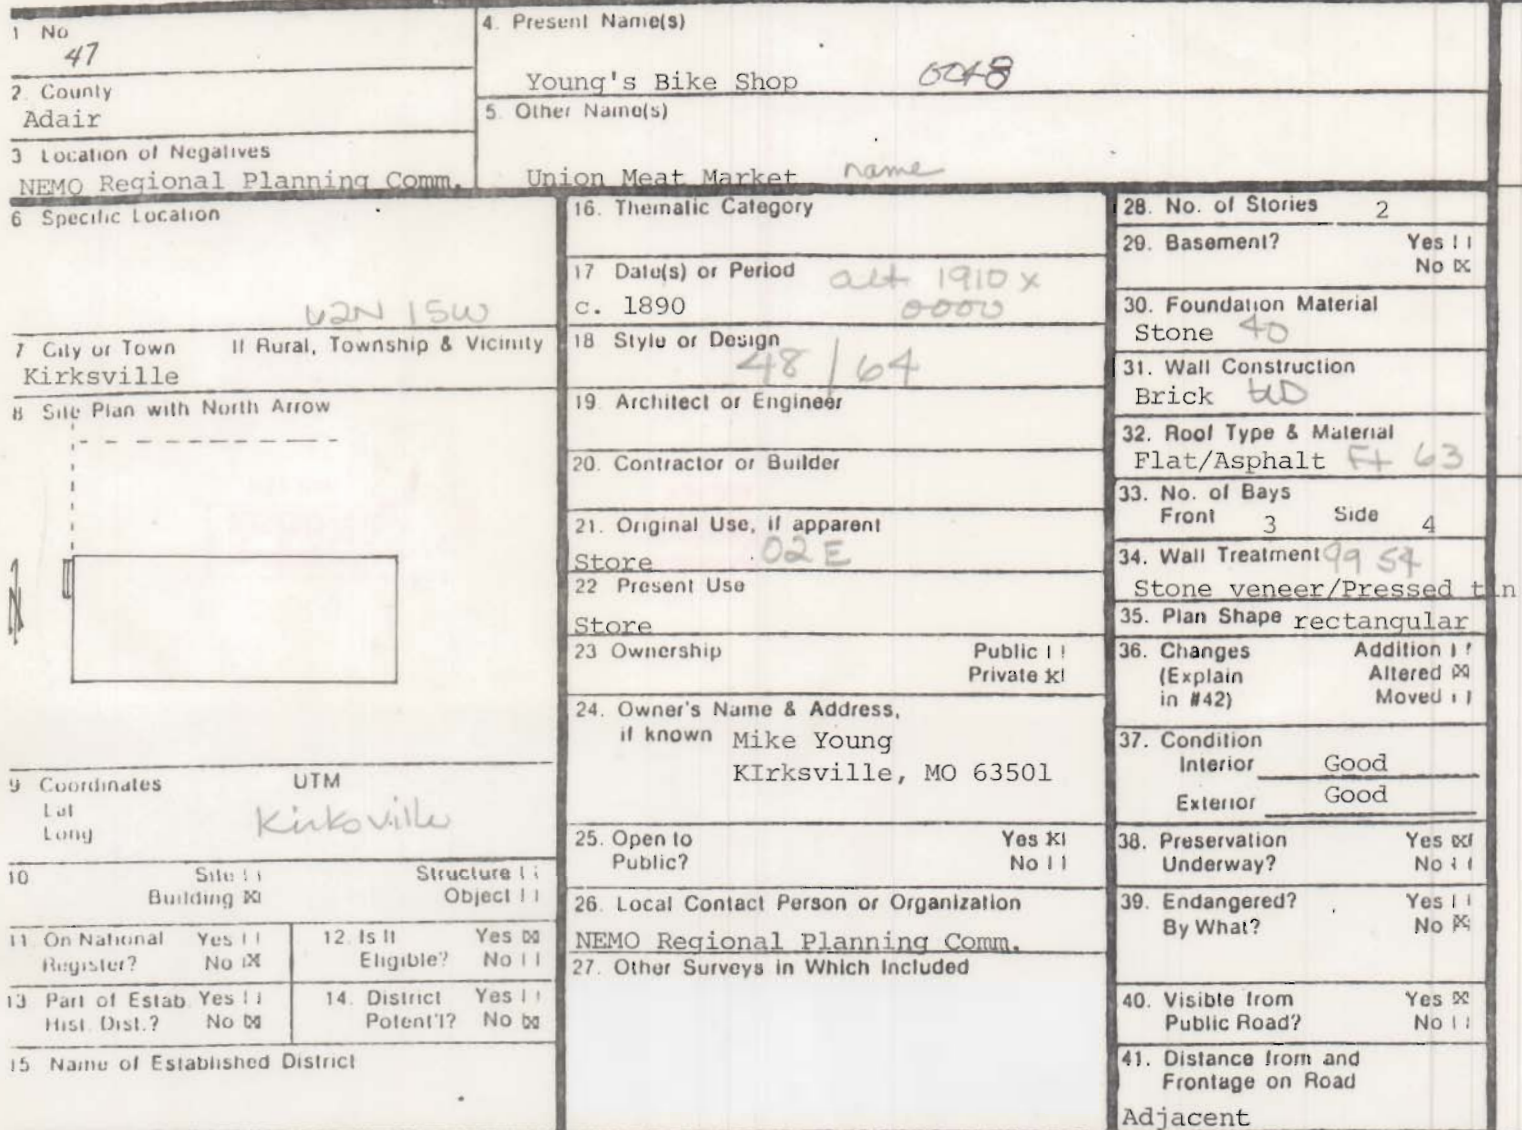 1 No
47
2. County
Adair
3 Location of Negatives
NEMO Regional Planning Comm.
4. Present Name(s)
Young's Bike Shop
5. Other Name(s)
Union Meat Market name
6 Specific Location
62N 15W
7 City or Town If Rural, Township & Vicinity
Kirksville
8 Site Plan with North Arrow
N
9 Coordinates UTM
Lat
Long
Kirksville
10 Site Structure
Building [X] Object
11. On National Yes
Register? No [X]
12. Is It Yes [X]
Eligible? No
13 Part of Estab. Yes
Hist. Dist.? No [X]
14. District Yes
Potent'l? No [X]
15 Name of Established District
16. Thematic Category
17 Date(s) or Period alt 1910 x
c. 1890 0000
18 Style or Design
48/64
19. Architect or Engineer
20. Contractor or Builder
21. Original Use, if apparent
Store 02E
22 Present Use
Store
23 Ownership Public
Private [X]
24. Owner's Name & Address,
if known Mike Young
KIrksville, MO 63501
25. Open to Yes [X]
Public? No
26. Local Contact Person or Organization
NEMO Regional Planning Comm.
27. Other Surveys in Which Included
28. No. of Stories 2
29. Basement? Yes
No [X]
30. Foundation Material
Stone 40
31. Wall Construction
Brick
32. Roof Type & Material
Flat/Asphalt Ft 63
33. No. of Bays
Front 3 Side 4
34. Wall Treatment 99 54
Stone veneer/Pressed tin
35. Plan Shape rectangular
36. Changes Addition
(Explain Altered [X]
in #42) Moved
37. Condition
Interior Good
Exterior Good
38. Preservation Yes [X]
Underway? No
39. Endangered? Yes
By What? No [X]
40. Visible from Yes [X]
Public Road? No
41. Distance from and
Frontage on Road
Adjacent